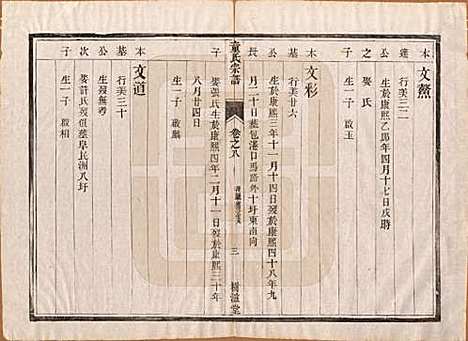 本 文鰲
達 行美三二
公 生於康熙乙卯年四月十七日戌時
之 娶氏
子 生一子 啟玉
木 文彩
基 行美廿六
公 生於康熙三年十一月十四日歿於康熙四十八年九
長 月二十日葬包港口馬路外十圩東南向
娶張氏生於康熙四年二月十一日歿於康熙三十年
子 八月廿四日
生一子 啟麟
童氏宗譜
卷之八
三
樹滋堂
本 文道
基 行美三十
公 生歿無考
次 娶許氏歿俱葬阜民洲八圩
子 生一子 啟相